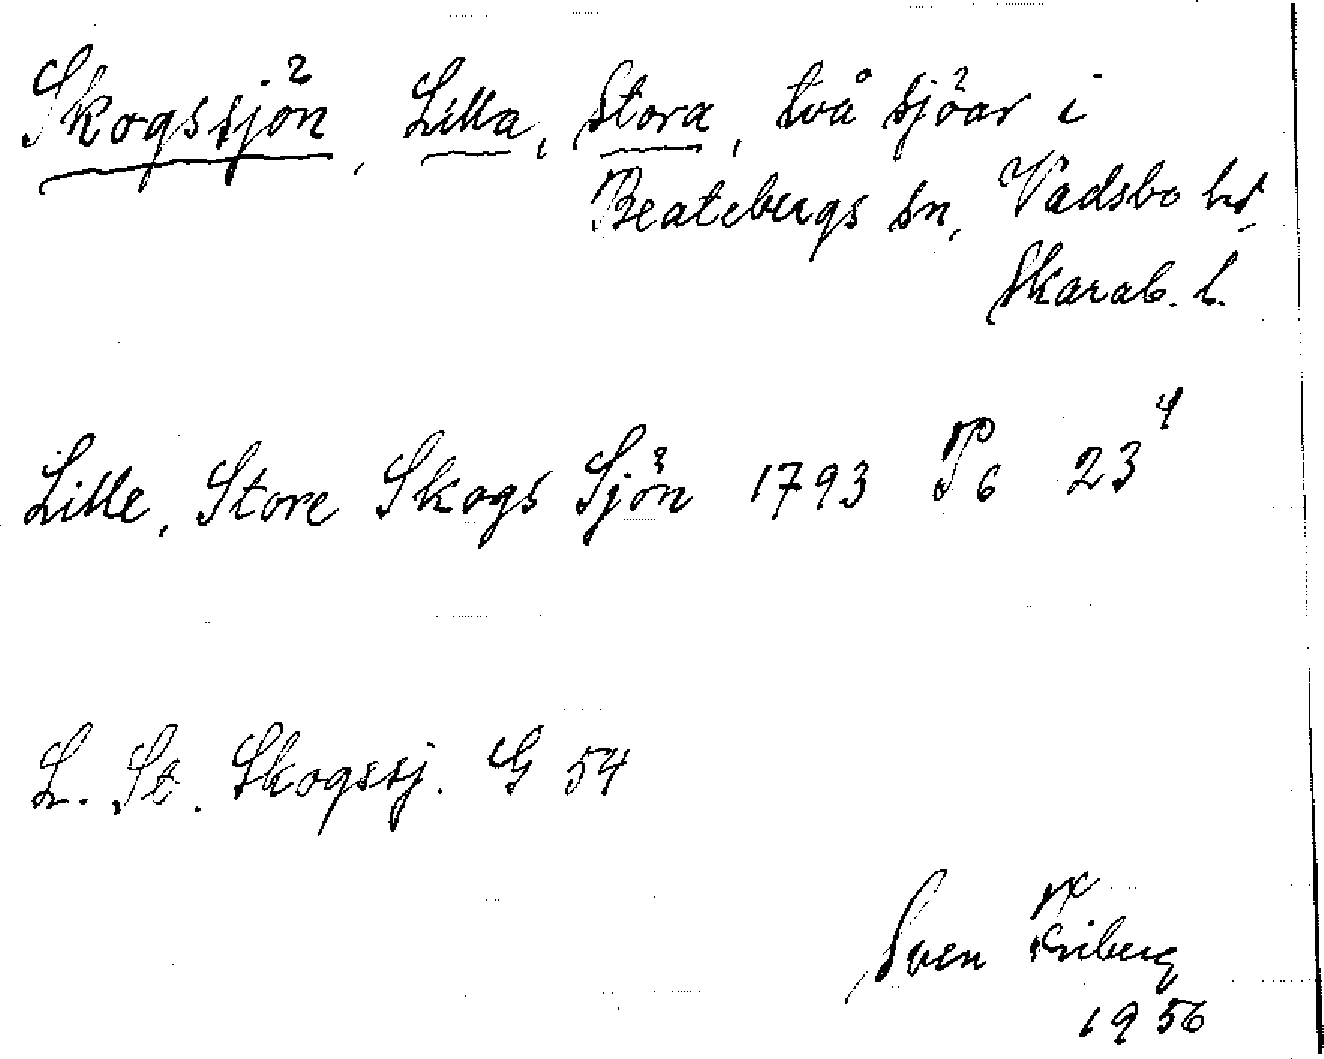 Skogssjön, Lilla, Stora, två sjöar i
Beatebergs sn, Vadsbo hd,
Skarab. l.
Lille, Store Skogs Sjön 1793 P6 23⁴
L. St. Skogssj. G 54
Sven Friberg
1956